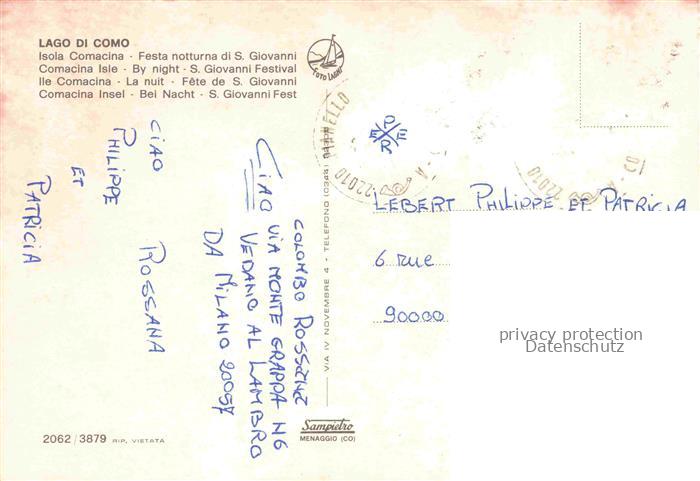 LAGO DI COMO
Isola Comacina · Festa notturna di S. Giovanni
Comacina Isle · By night · S. Giovanni Festival
Ile Comacina · La nuit · Fête de S. Giovanni
Comacina Insel · Bei Nacht · S. Giovanni Fest
FOTO
CIAO
PHILIPPE
ET
PATRICIA
ROSSANA
CIAO
COLOMBO ROSSANA
VIA MONTE GRAPPA N6
VEDANO AL LAMBRO
DA MILANO 20057
VIA IV NOVEMBRE 4 - TELEFONO (0344)
22010
22010
PER
LEBERT PHILIPPE ET PATRICIA
6 rue
90000
privacy protection
Datenschutz
2062/3879 RIP. VIETATA
Sampietro
MENAGGIO (CO)